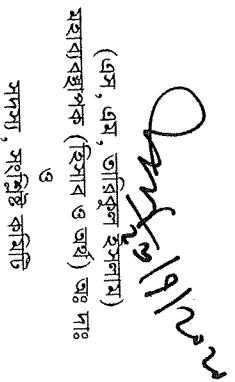 ২৯/9/২০২০
(এস, এম, তারিকুল ইসলাম)
মহাব্যবস্থাপক (হিসাব ও অর্থ) অঃ দাঃ
ও
সদস্য, সংশ্লিষ্ট কমিটি